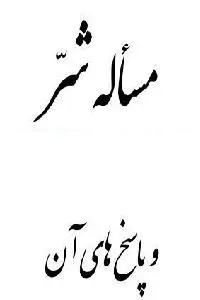 مسأله شرّ
و پاسخ های آن